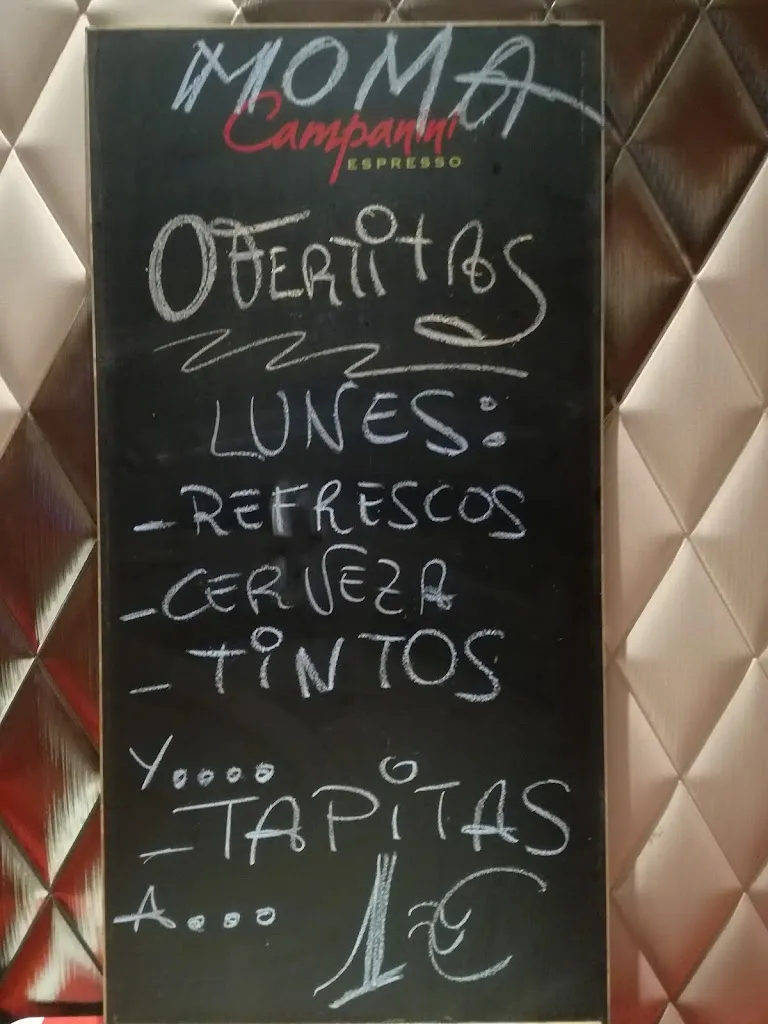 MOMA
Campanini
ESPRESSO
OFERTITAS
LUNES:
- REFRESCOS
- CERVEZA
- TINTOS
Y....
- TAPITAS
A.... 1€